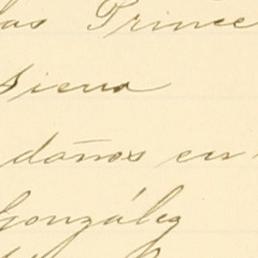 las Prince
siena
danos en
González